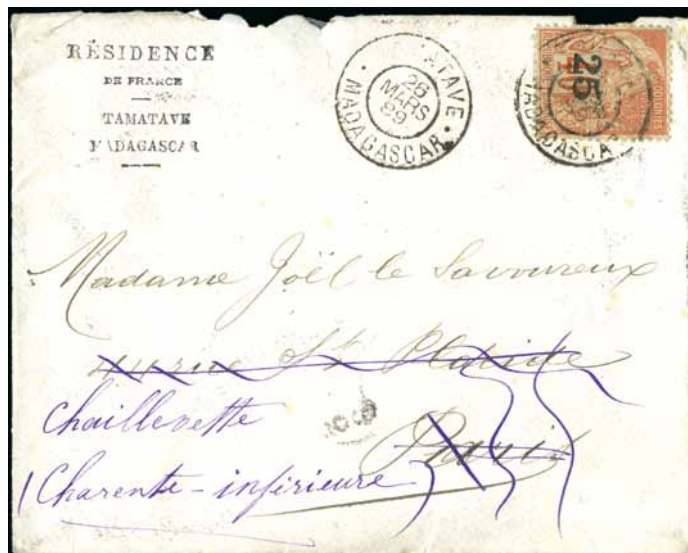 RÉSIDENCE
DE FRANCE
TAMATAVE
MADAGASCAR
ATAVE
26
MARS
89
MADAGASCAR
25
COLONIES
MADAGASCA
Madame Joël le Savoureux
44 rue St Placide
Paris
Chaillevette
Charente-inférieure